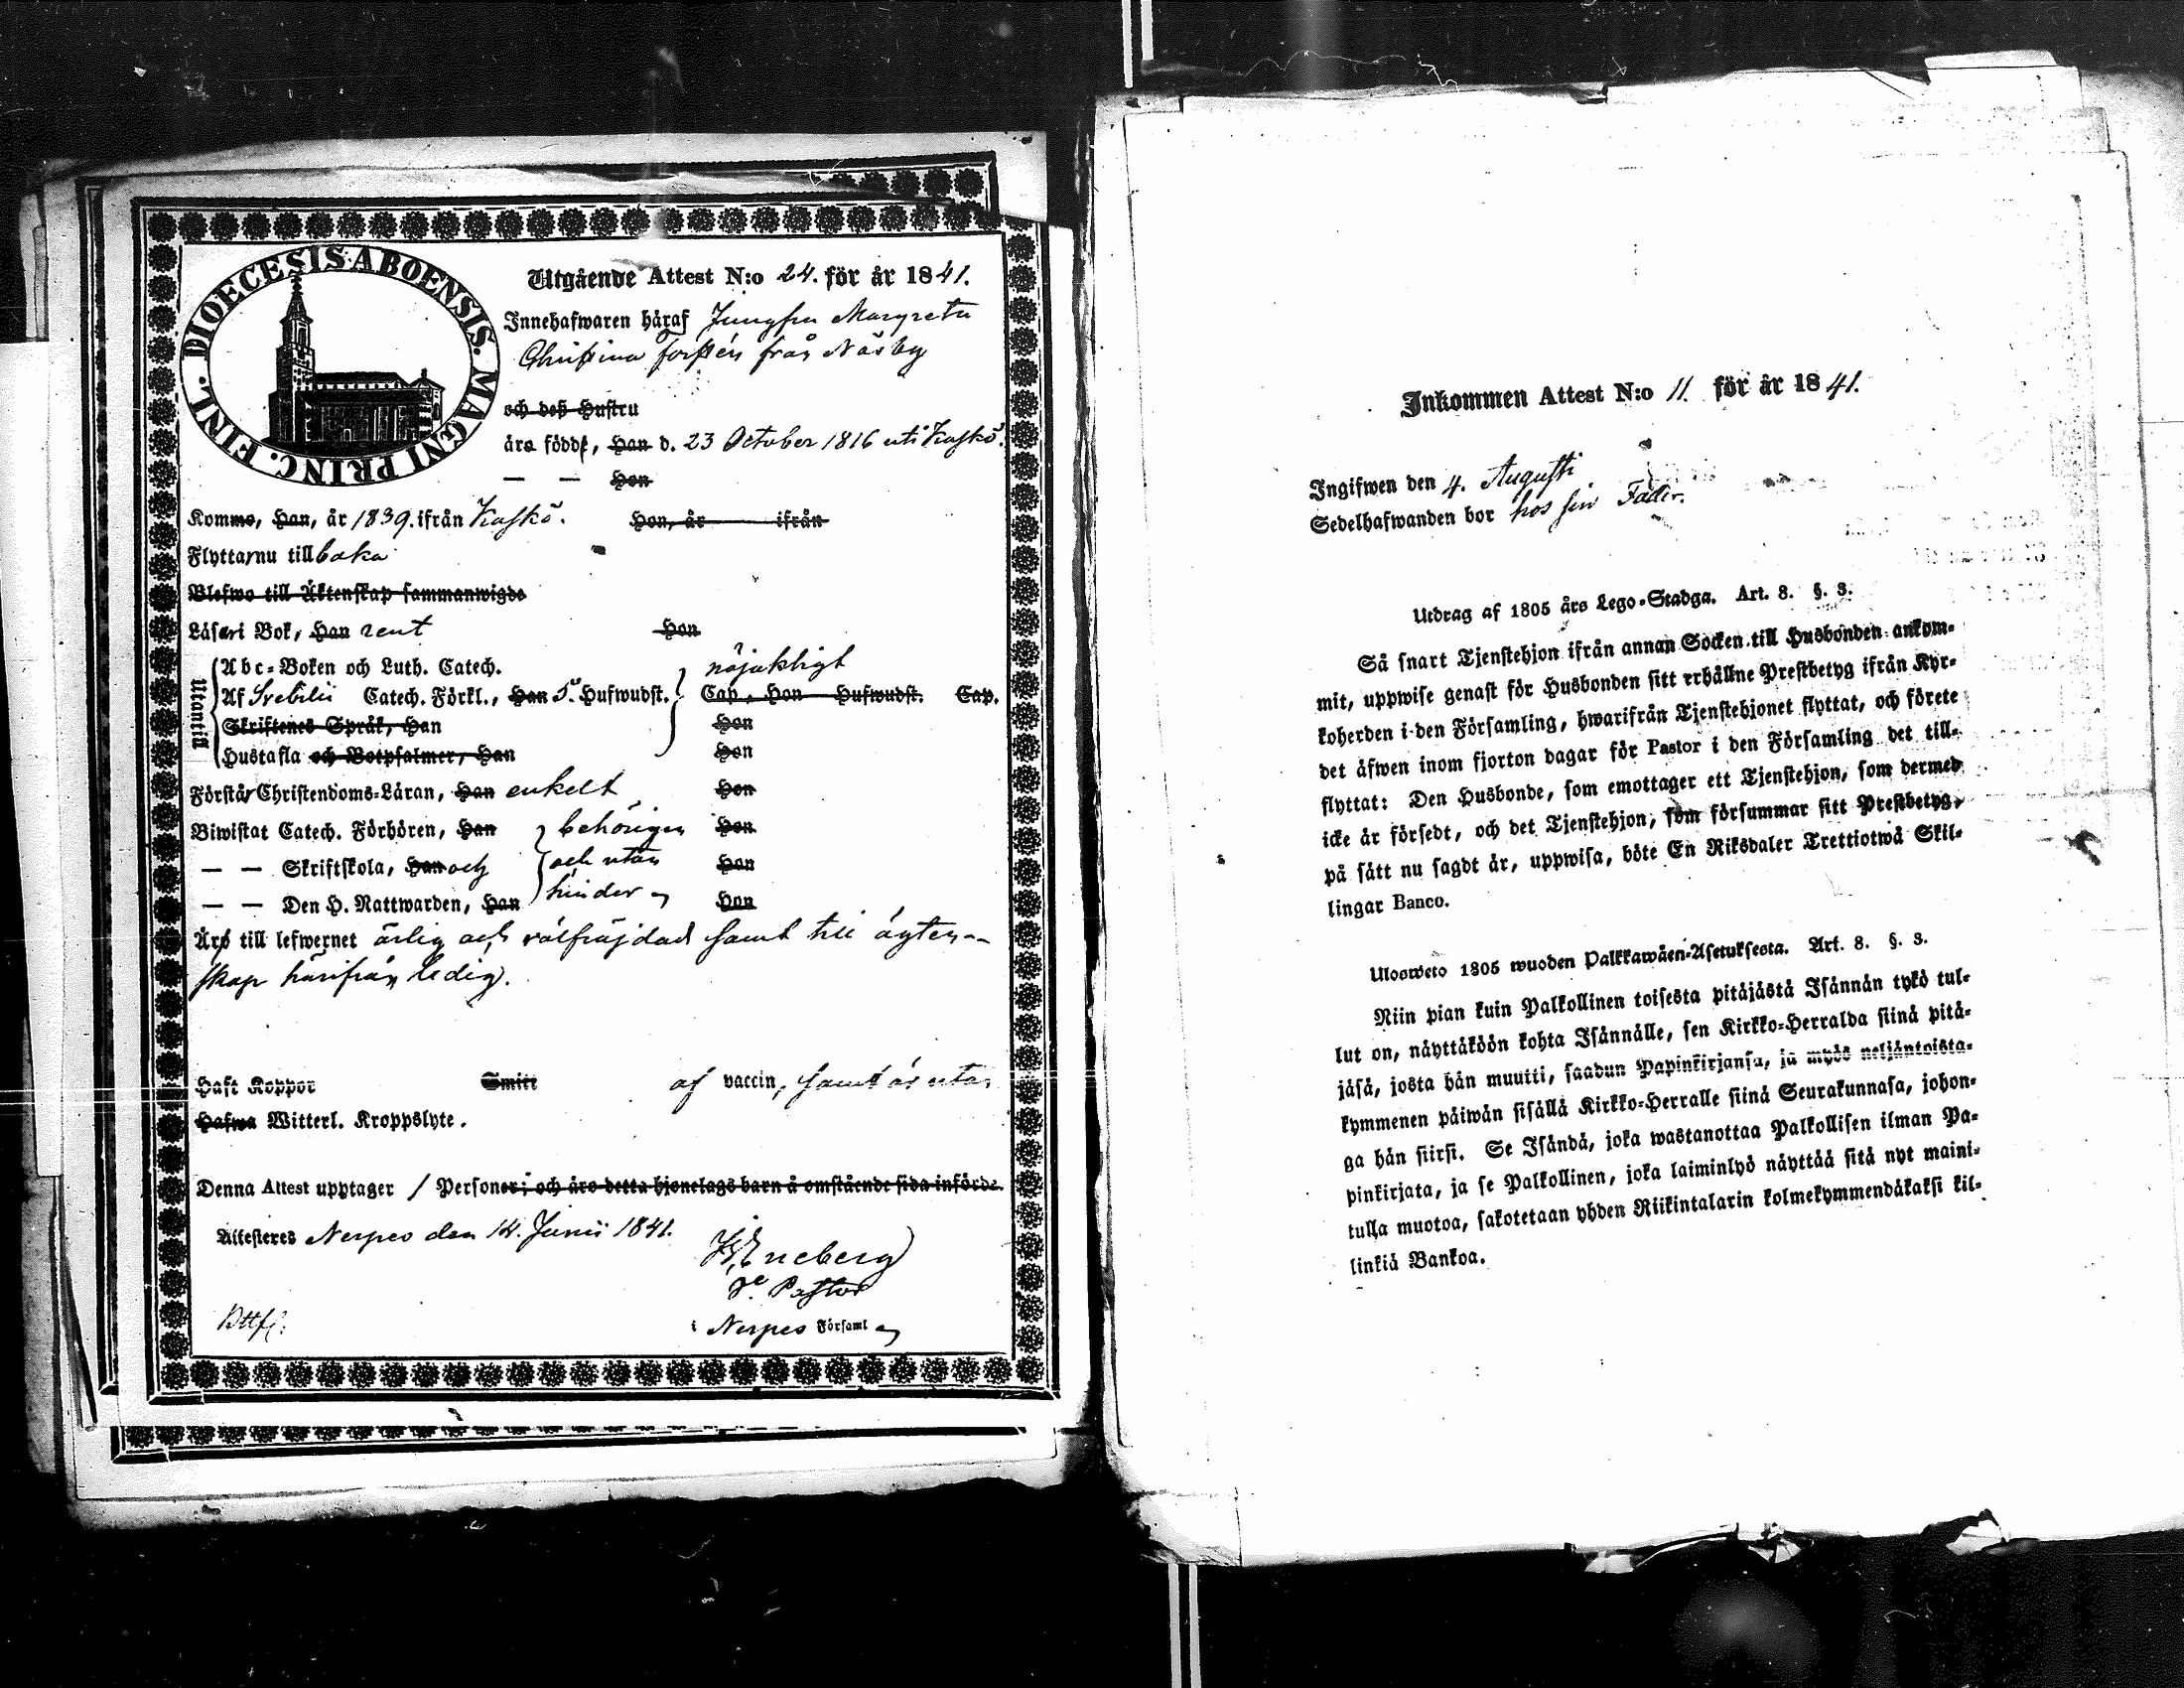 DIOECESIS ABOENSIS. MAGNI PRINC. FINL.
Utgående Attest N:o 24. för år 1841.
Innehafwaren häraf Jungfru Margreta
Christina Forssén från Näsby
och deß Hustru
äro födde, Han d. 23 October 1816 uti Kaskö.
— — Hon
Kommo, Han, år 1839. ifrån Kaskö. Hon, år ifrån
Flytta nu till baka
Blefwo till Äktenskap sammanwigde
Läser i Bok, Han rent Hon
Utantill
Abc-Boken och Luth. Catech. nöjaktligt
Af Svebilii Catech. Förkl., Han 5. Hufwudst. Cap. Hon Hufwudst. Cap.
Skriftenes Språk, Han Hon
Hustafla och Botpsalmer, Han Hon
Förstår Christendoms-Läran, Han enkelt Hon
Biwistat Catech. Förhören, Han behörigen Hon
— — Skriftskola, Han och och utan Hon
— — Den H. Nattwarden, Han hinder Hon
Äro till lefwernet ärlig och välfräjdad samt till ägten-
skap härifrån ledig.
Haft Koppor Smitt af vaccin, samt är utan
Hafwa Witterl. Kroppslyte.
Denna Attest upptager 1 Personer i och äro detta hjonelags barn å omstående sida införde.
Attesteres Nerpes den 14. Junii 1841.
Eneberg
Pastor
i Nerpes Församl
Inkommen Attest N:o 11. för år 1841.
Ingifwen den 4. Augusti
Sedelhafwanden bor hos sin Fader.
Utdrag af 1805 års Lego-Stadga. Art. 8. §. 3.
Så snart Tjenstehjon ifrån annan Socken till Husbonden ankom-
mit, uppwise genast för Husbonden sitt erhållne Prestbetyg ifrån Kyr-
koherden i den Församling, hwarifrån Tjenstehjonet flyttat, och förete
det äfwen inom fjorton dagar för Pastor i den Församling det till-
flyttat: Den Husbonde, som emottager ett Tjenstehjon, som dermed
icke är försedt, och det Tjenstehjon, som försummar sitt Prestbetyg,
på sätt nu sagdt är, uppwisa, böte En Riksdaler Trettiotwå Skil-
lingar Banco.
Ulosweto 1805 wuoden Palkkawäen-Asetuksesta. Art. 8. §. 3.
Niin pian kuin Palkollinen toisesta pitäjästä Isännän tykö tul-
lut on, näyttäköön kohta Isännälle, sen Kirkko-Herralda siinä pitä-
jäsä, josta hän muutti, saadun Papinkirjansa, ja myös neljäntoista-
kymmenen päiwän sisällä Kirkko-Herralle siinä Seurakunnasa, johon-
ga hän siirsi. Se Isändä, joka wastanottaa Palkollisen ilman Pa-
pinkirjata, ja se Palkollinen, joka laiminlyö näyttää sitä nyt maini-
tulla muotoa, sakotetaan yhden Riikintalarin kolmekymmendäkaksi kil-
linkiä Bankoa.